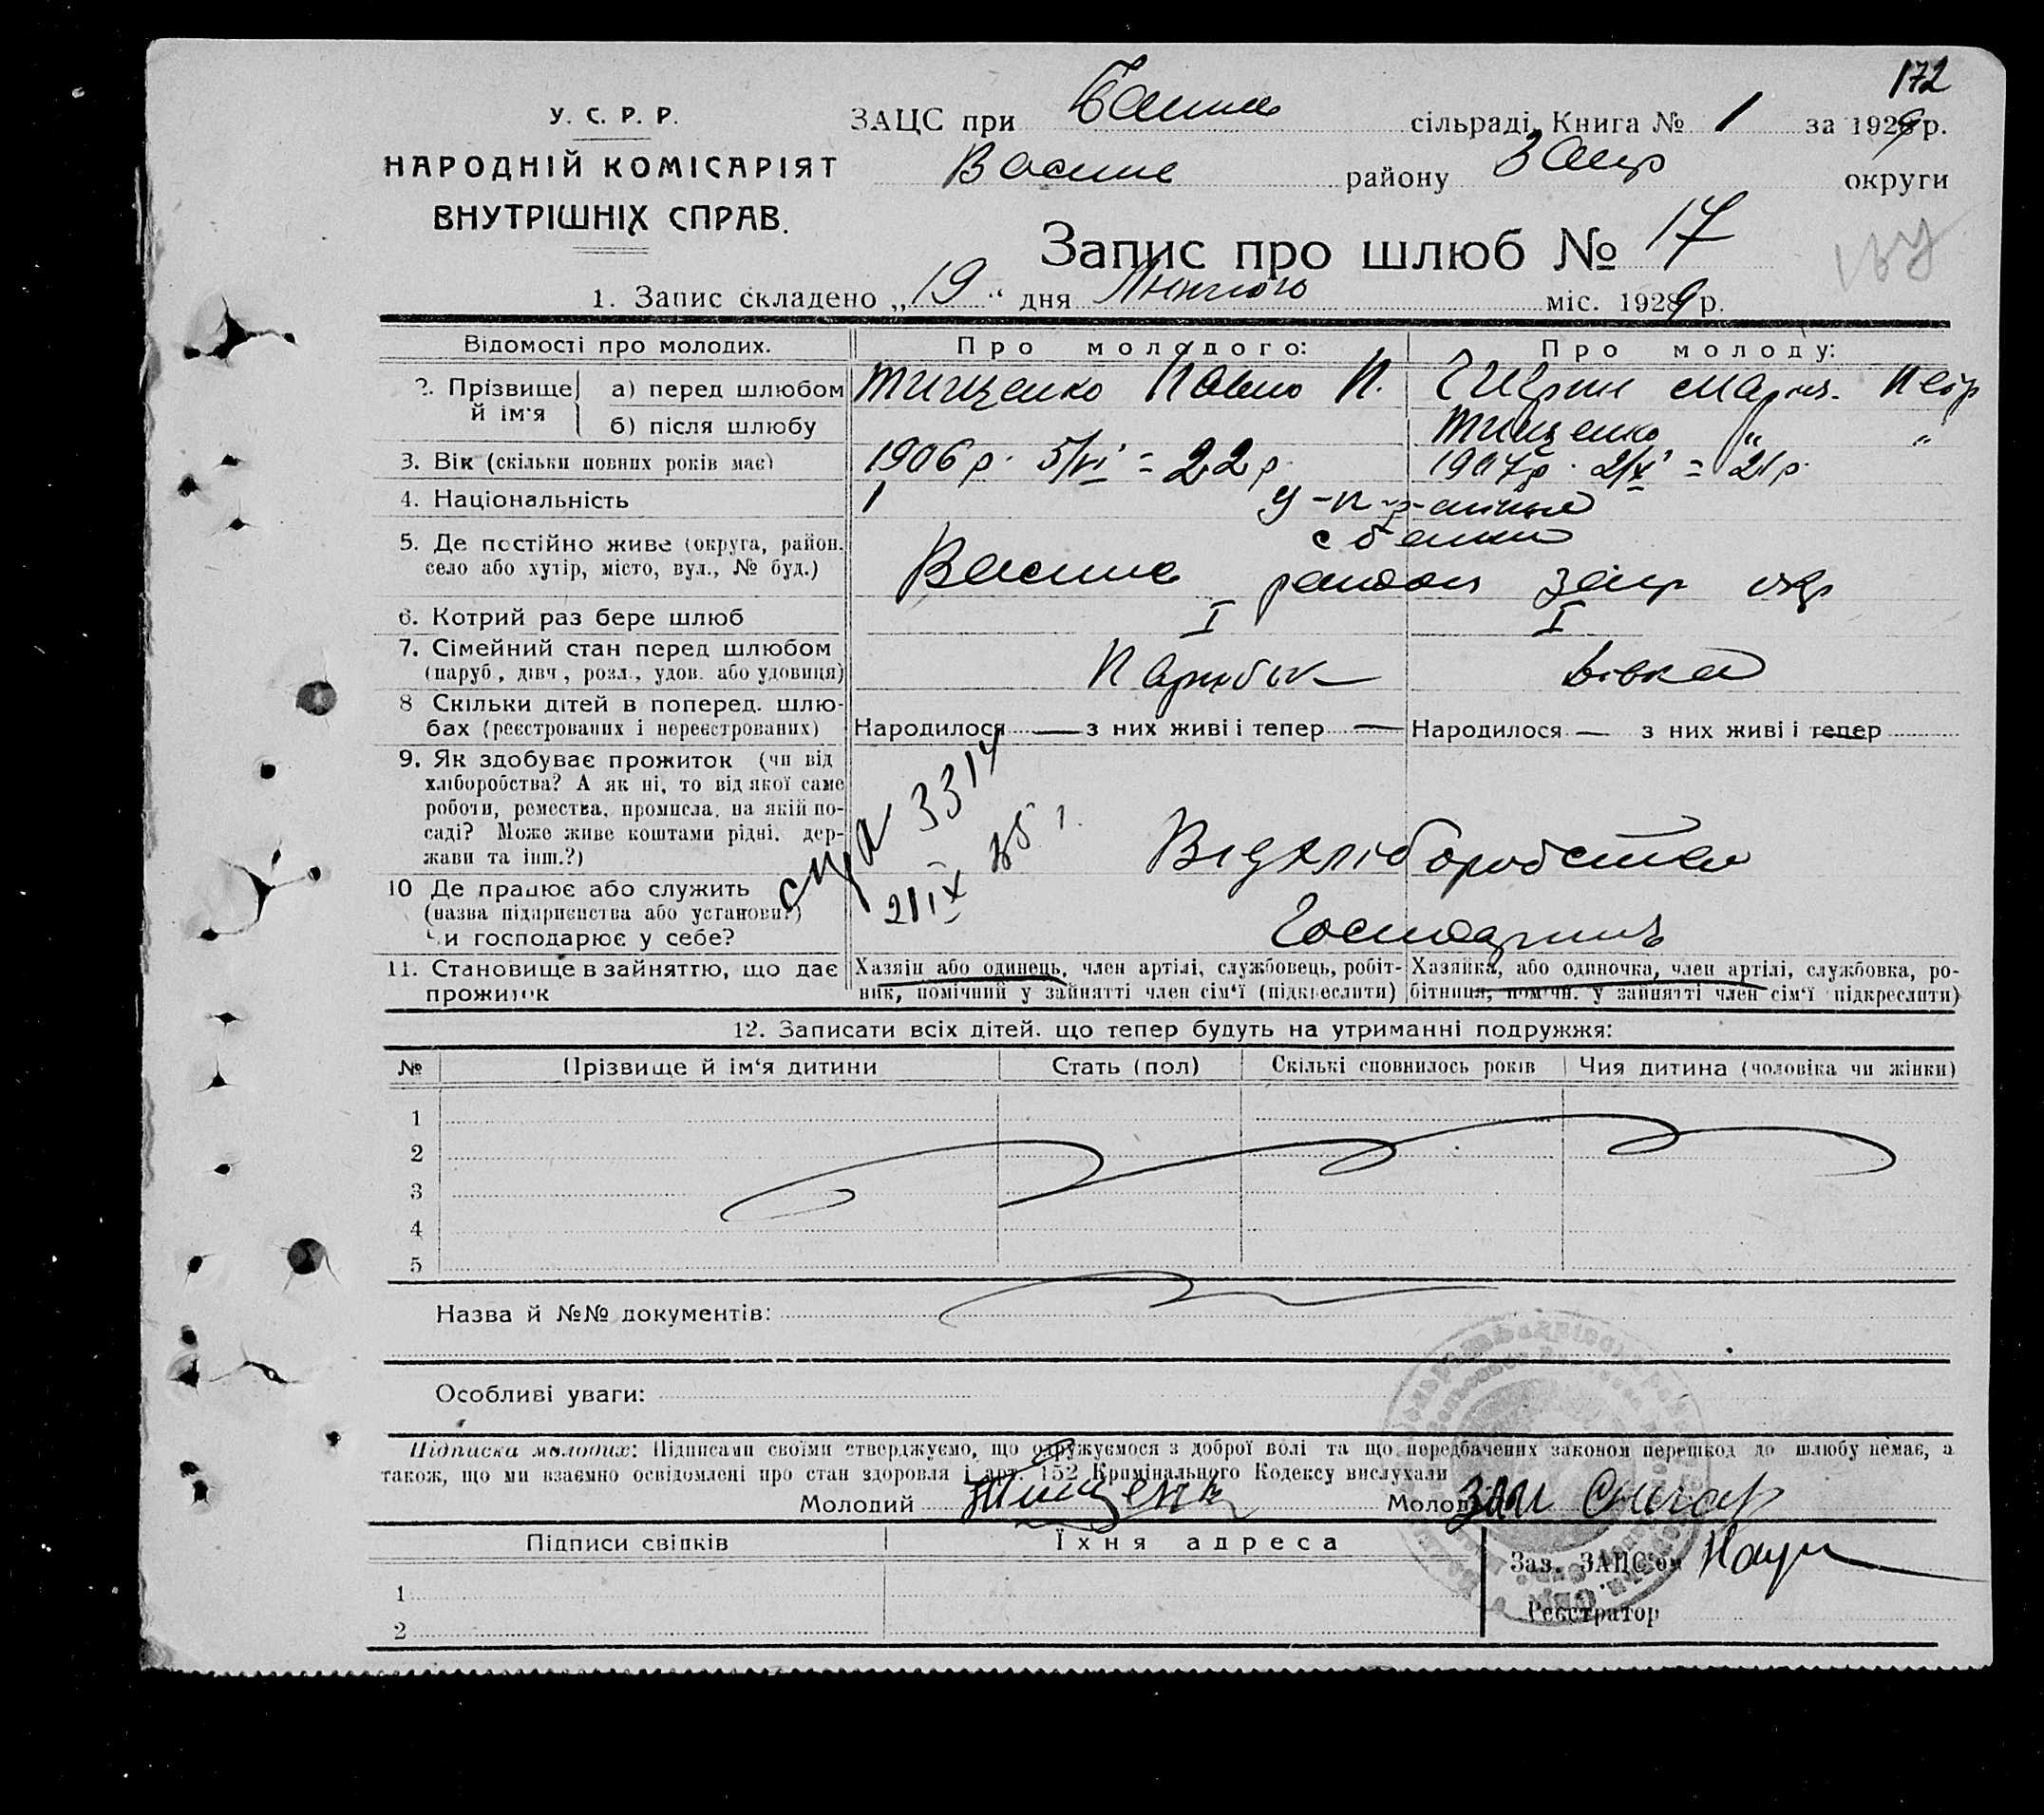 172
У. С. Р. Р.
НАРОДНІЙ КОМІСАРІЯТ
ВНУТРІШНІХ СПРАВ.
ЗАЦС при сільраді. Книга № 1 за 1929 р.
Васине району Запр округи
Запис про шлюб № 17
1. Запис складено „19“ дня Лютого міс. 1929 р.
Відомості про молодих. Про молодого: Про молоду:
2. Прізвище й ім'я а) перед шлюбом Тищенко Павло П. Мария Петр
б) після шлюбу Тищенко " "
3. Вік (скільки повних років має) 1906 р. 5/VI = 22 р. 1907 р. 2/X = 21 р.
4. Національність
5. Де постійно живе (округа, район, село або хутір, місто, вул., № буд.) Васине району Запр окр
6. Котрий раз бере шлюб I I
7. Сімейний стан перед шлюбом (паруб., дівч., розл., удов. або удовиця) Парубок Дівка
8 Скільки дітей в поперед. шлюбах (реєстрованих і нереєстрованих) Народилося — з них живі і тепер — Народилося — з них живі і тепер
9. Як здобуває прожиток (чи від хліборобства? А як ні, то від якої саме роботи, ремества, промисла, на якій посаді? Може живе коштами рідні, держави та інш.?) Від хліборобства
3314
21 IX
10 Де працює або служить (назва підприєнства або установи?) Чи господарює у себе?
11. Становище в зайняттю, що дає прожиток
Хазяін або одинець, член артілі, службовець, робітник, помічний у зайнятті член сім'ї (підкреслити)
Хазяйка, або одиночка, член артілі, службовка, робітниця, помічн. у зайнятті член сім'ї підкреслити)
12. Записати всіх дітей, що тепер будуть на утриманні подружжя:
№ Прізвище й ім'я дитини Стать (пол) Скількі сповнилось років Чия дитина (чоловіка чи жінки)
1
2
3
4
5
Назва й №№ документів:
Особливі уваги:
Підписка молодих: Підписами своїми стверджуємо, що одружуємося з доброї волі та що передбачених законом перешкод до шлюбу немає, а
також, що ми взаємно освідомлені про стан здоровля і арт. 152 Кримінального Кодексу вислухали
Молодий Тищенко Молода
Підписи свідків Їхня адреса
Зав. ЗАЦС'ом
1
Реєстратор
2